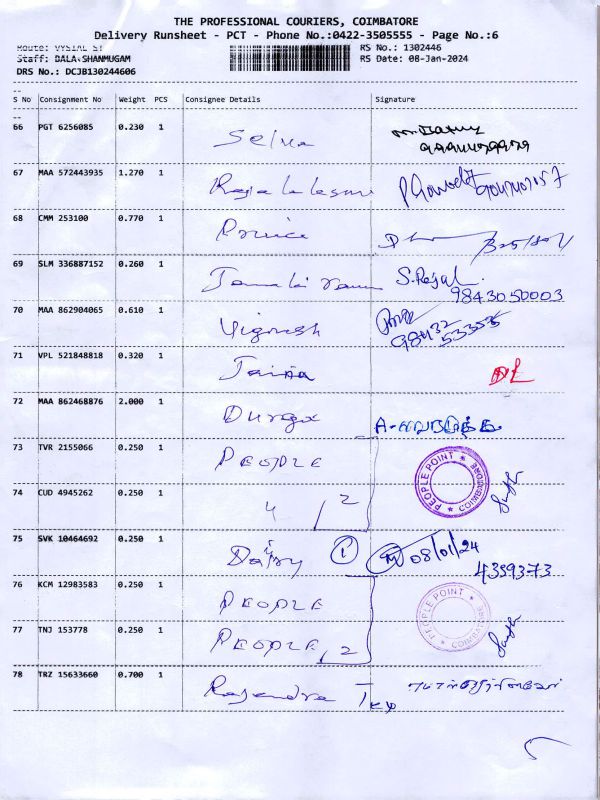 THE PROFESSIONAL COURIERS, COIMBATORE
Delivery Runsheet - PCT - Phone No.:0422-3505555 - Page No.:6
Route: VYSIAL ST RS No.: 1302446
Staff: BALA.SHANMUGAM RS Date: 08-Jan-2024
DRS No.: DCJB130244606
S No Consignment No Weight PCS Consignee Details Signature
66 PGT 6256085 0.230 1 Selva
67 MAA 572443935 1.270 1
68 CMM 253100 0.770 1 Prince
69 SLM 336887152 0.260 1 S. Rejal. 9843050003
70 MAA 862904065 0.610 1 Vignesh 98432 53353
71 VPL 521848818 0.320 1 Jaina DL
72 MAA 862468876 2.000 1 Durga
73 TVR 2155066 0.250 1 PEOPLE PEOPLE POINT * COIMBATORE *
74 CUD 4945262 0.250 1 4 / 2
75 SVK 10464692 0.250 1 Dairy 1 08/01/24
4359373
76 KCM 12983583 0.250 1 PEOPLE PEOPLE POINT * COIMBATORE *
77 TNJ 153778 0.250 1 PEOPLE / 2
78 TRZ 15633660 0.700 1 Rajendra Tex